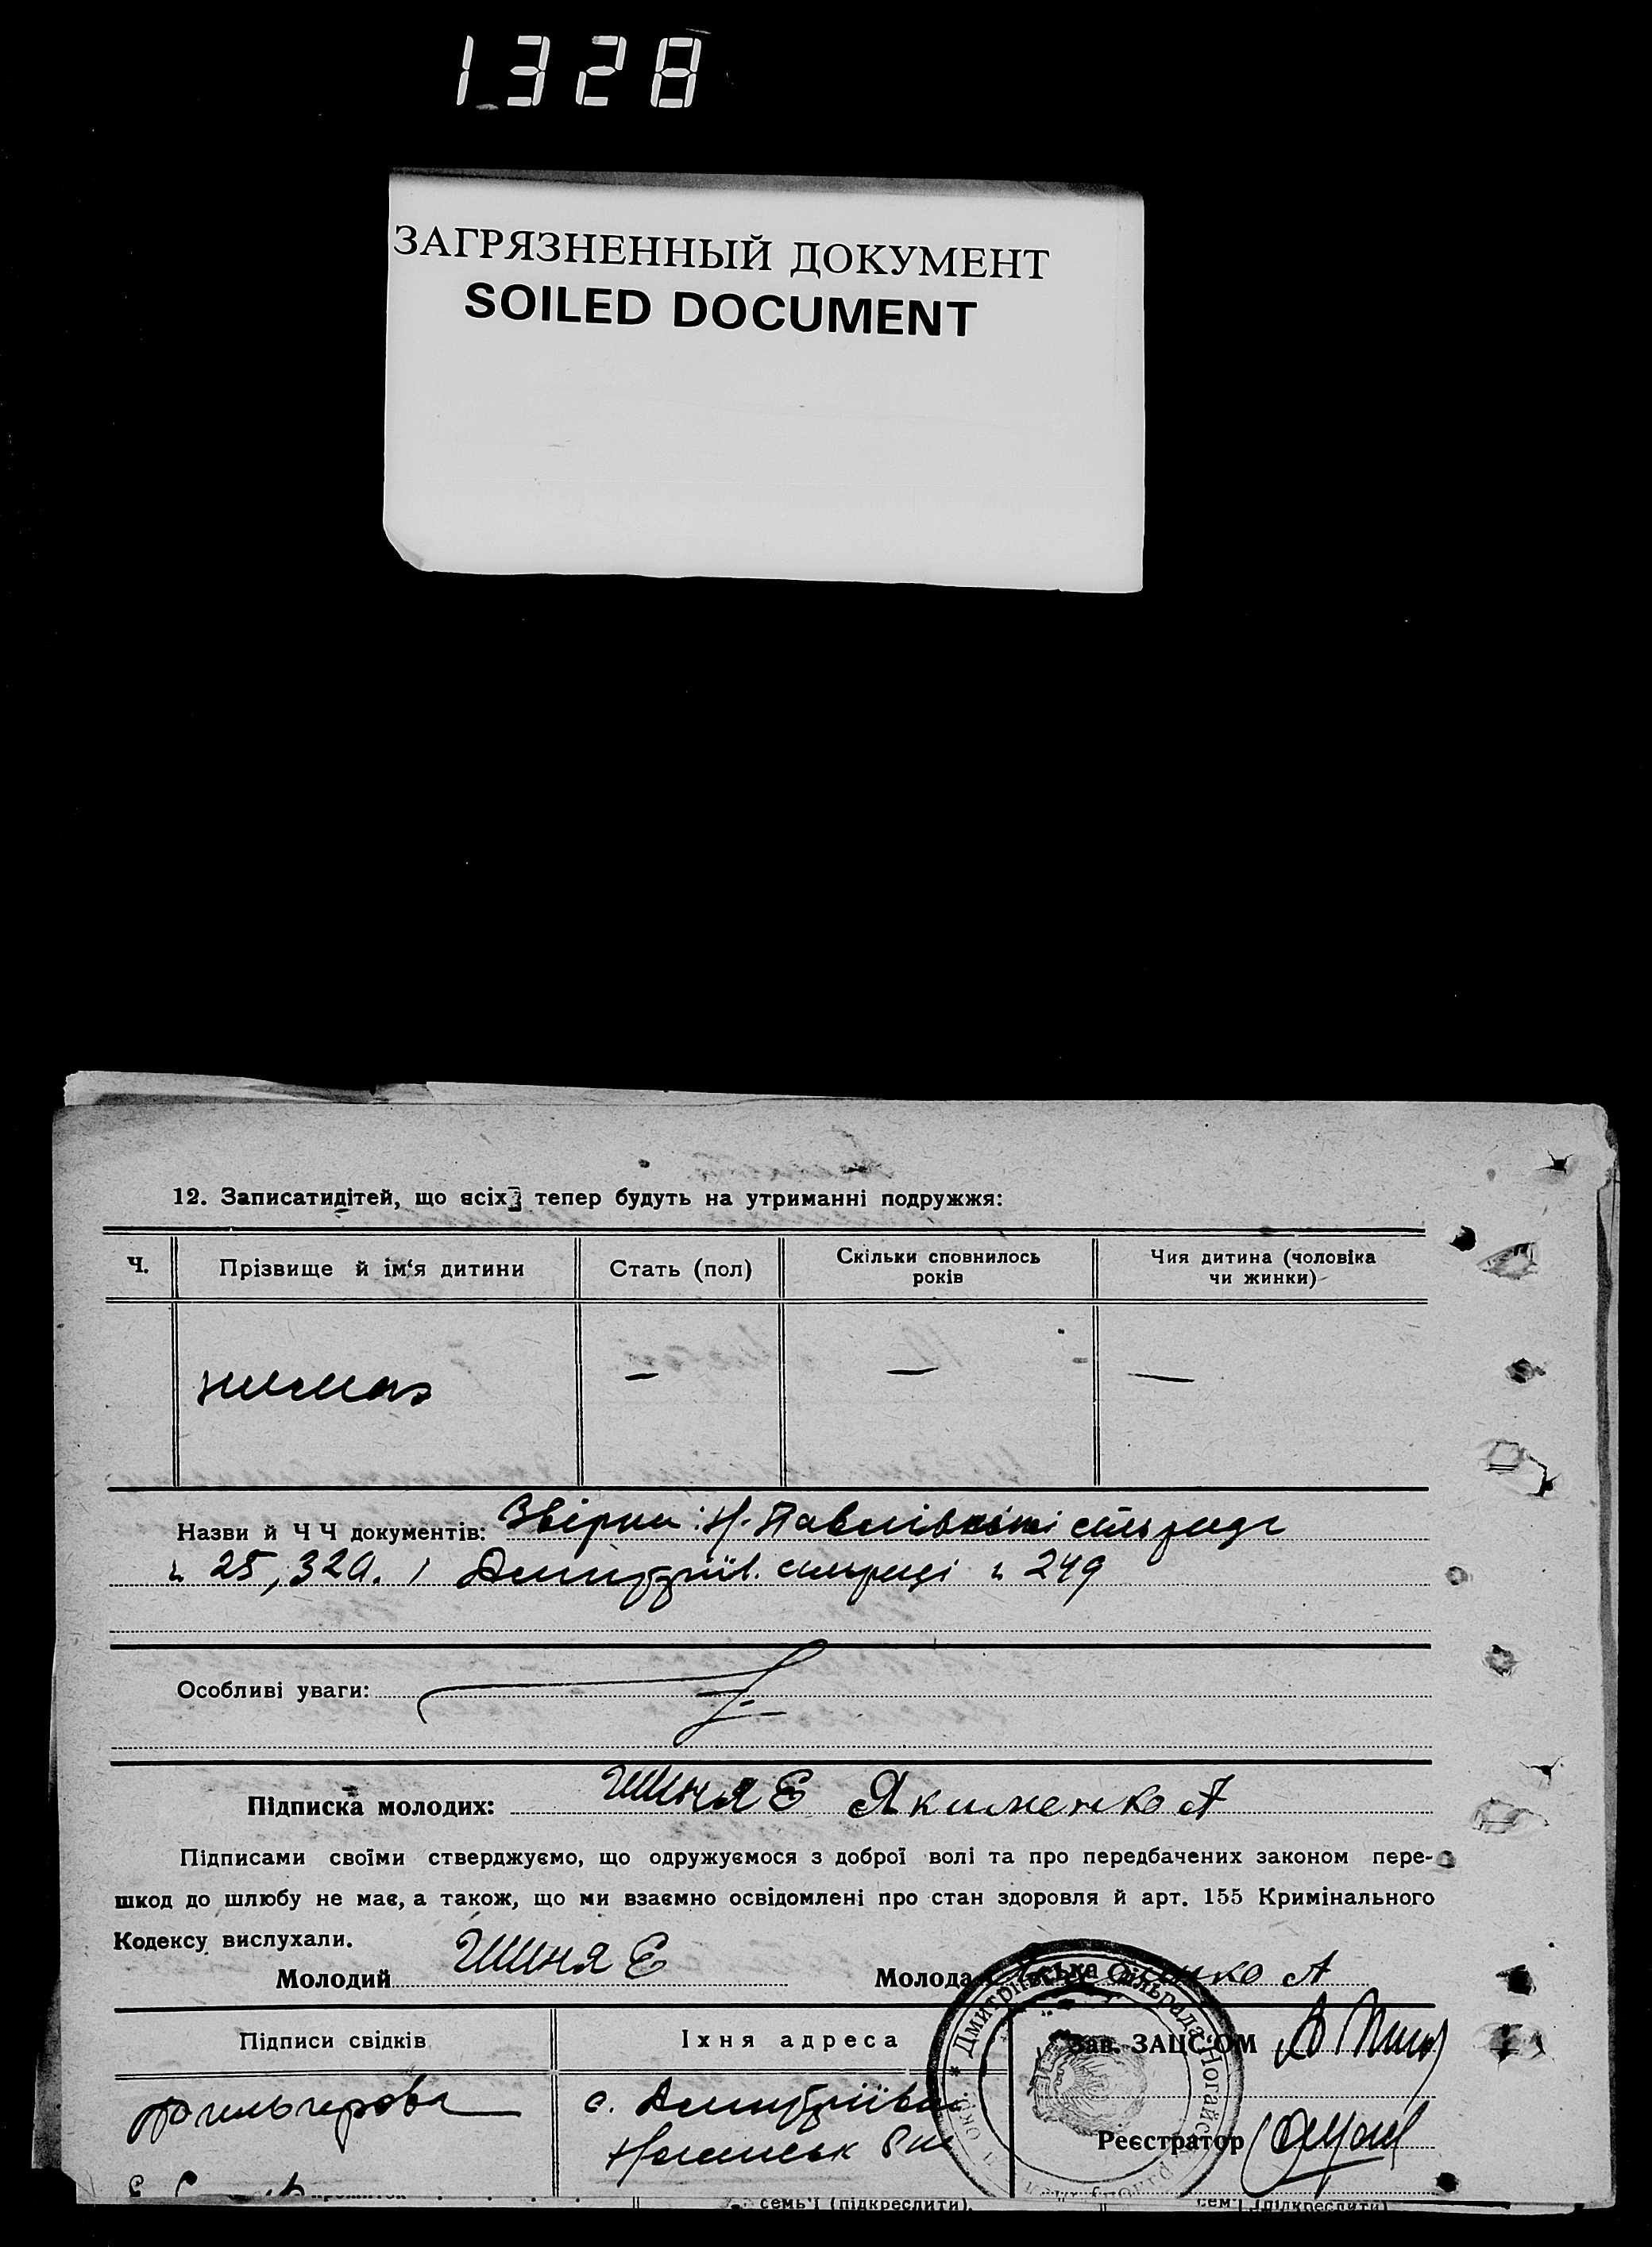 1328
ЗАГРЯЗНЕННЫЙ ДОКУМЕНТ
SOILED DOCUMENT
12. Записатидітей, що всіх тепер будуть на утриманні подружжя:
Ч. Прізвище й ім'я дитини Стать (пол) Скільки сповнилось років Чия дитина (чоловіка чи жинки)
— — —
Назви й Ч Ч документів: Звірки: Н-Павлівській сільради
25, 329. і Дмитріїв. сільраді 249
Особливі уваги:
Підписка молодих: Шиня Е Якименко А
Підписами своїми стверджуємо, що одружуємося з доброї волі та про передбачених законом пере-
шкод до шлюбу не має, а також, що ми взаємно освідомлені про стан здоровля й арт. 155 Кримінального
Кодексу вислухали.
Молодий Шиня Е Молода А
Підписи свідків Їхня адреса Зав. ЗАЦС'ОМ
с. Дмитріївка
Реєстратор
* Дмитріївська Сільрада Ногайс окр.
семь'ї (підкреслити). сем'ї (підкреслити)